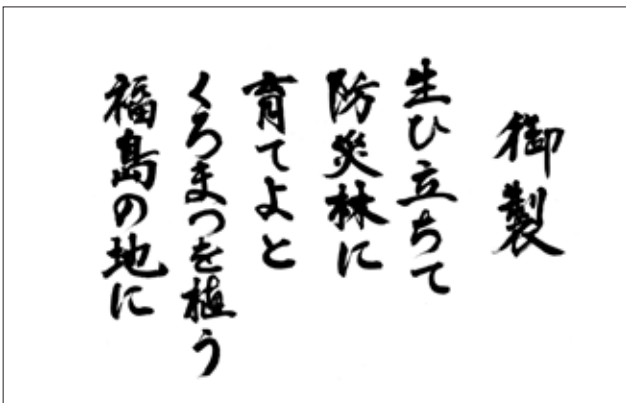 御製
生ひ立ちて
防災林に
育てよと
くろまつを植う
福島の地に